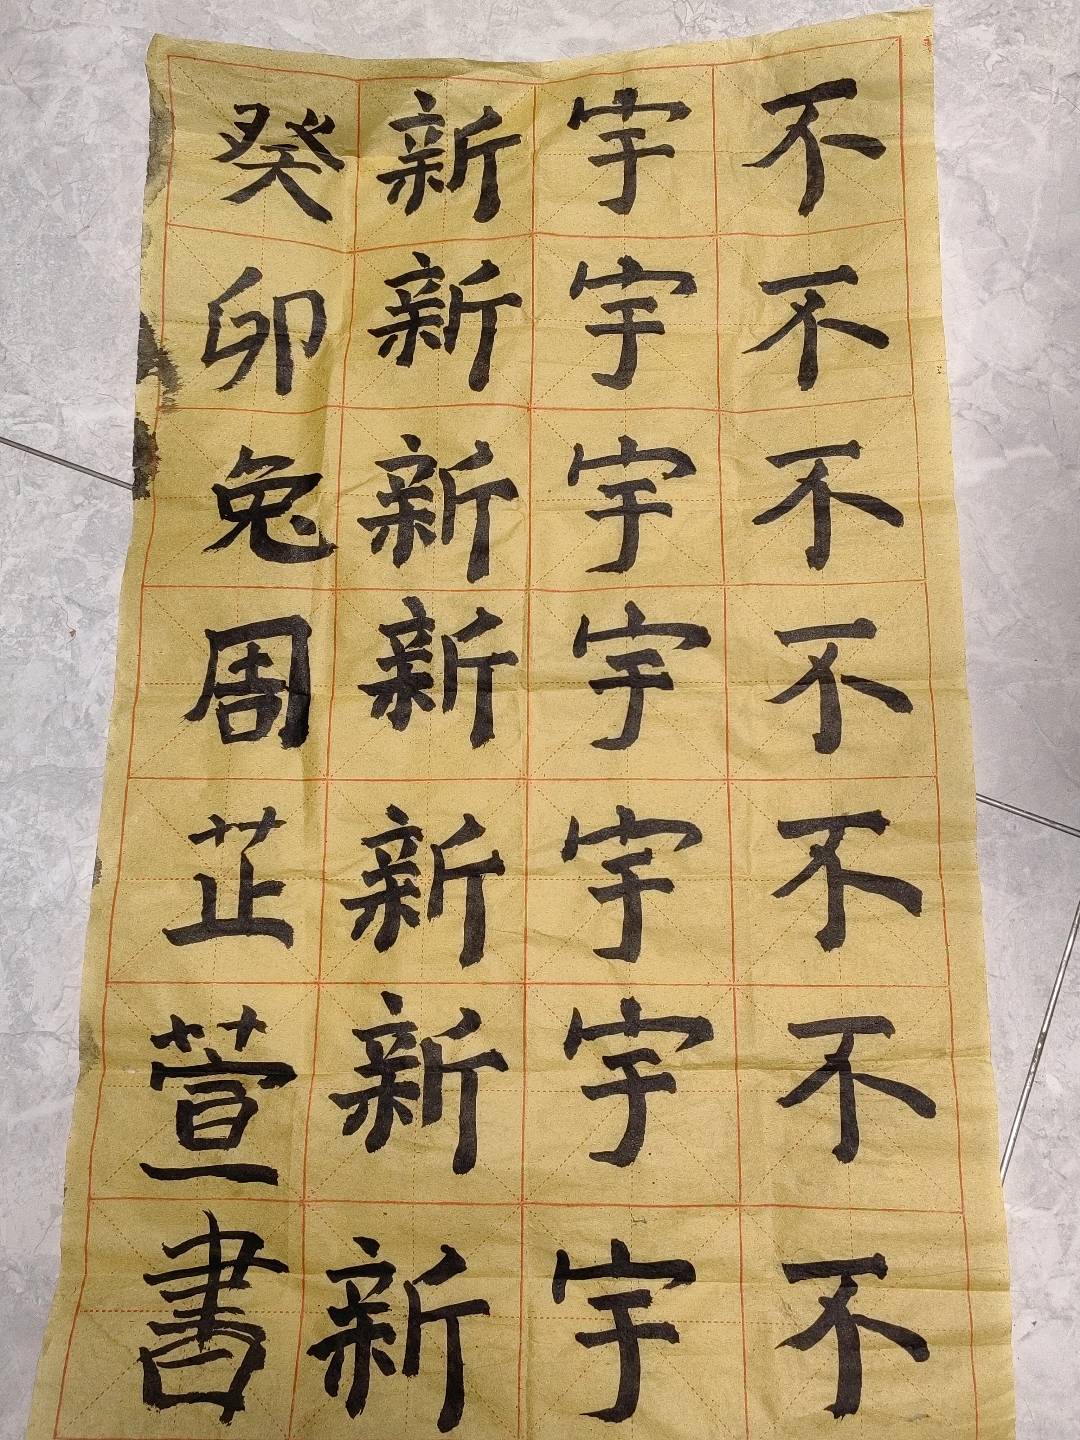 不不不不不不不
宇宇宇宇宇宇宇
新新新新新新新
癸卯兔周芷萱書